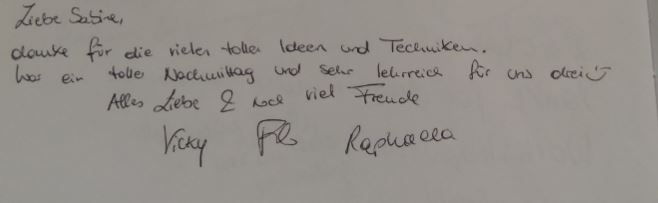 Liebe Sabine,
danke für die vielen tollen Ideen und Techniken.
War ein toller Nachmittag und sehr lehrreich für uns drei
Alles Liebe & noch viel Freude
Vicky Raphaela